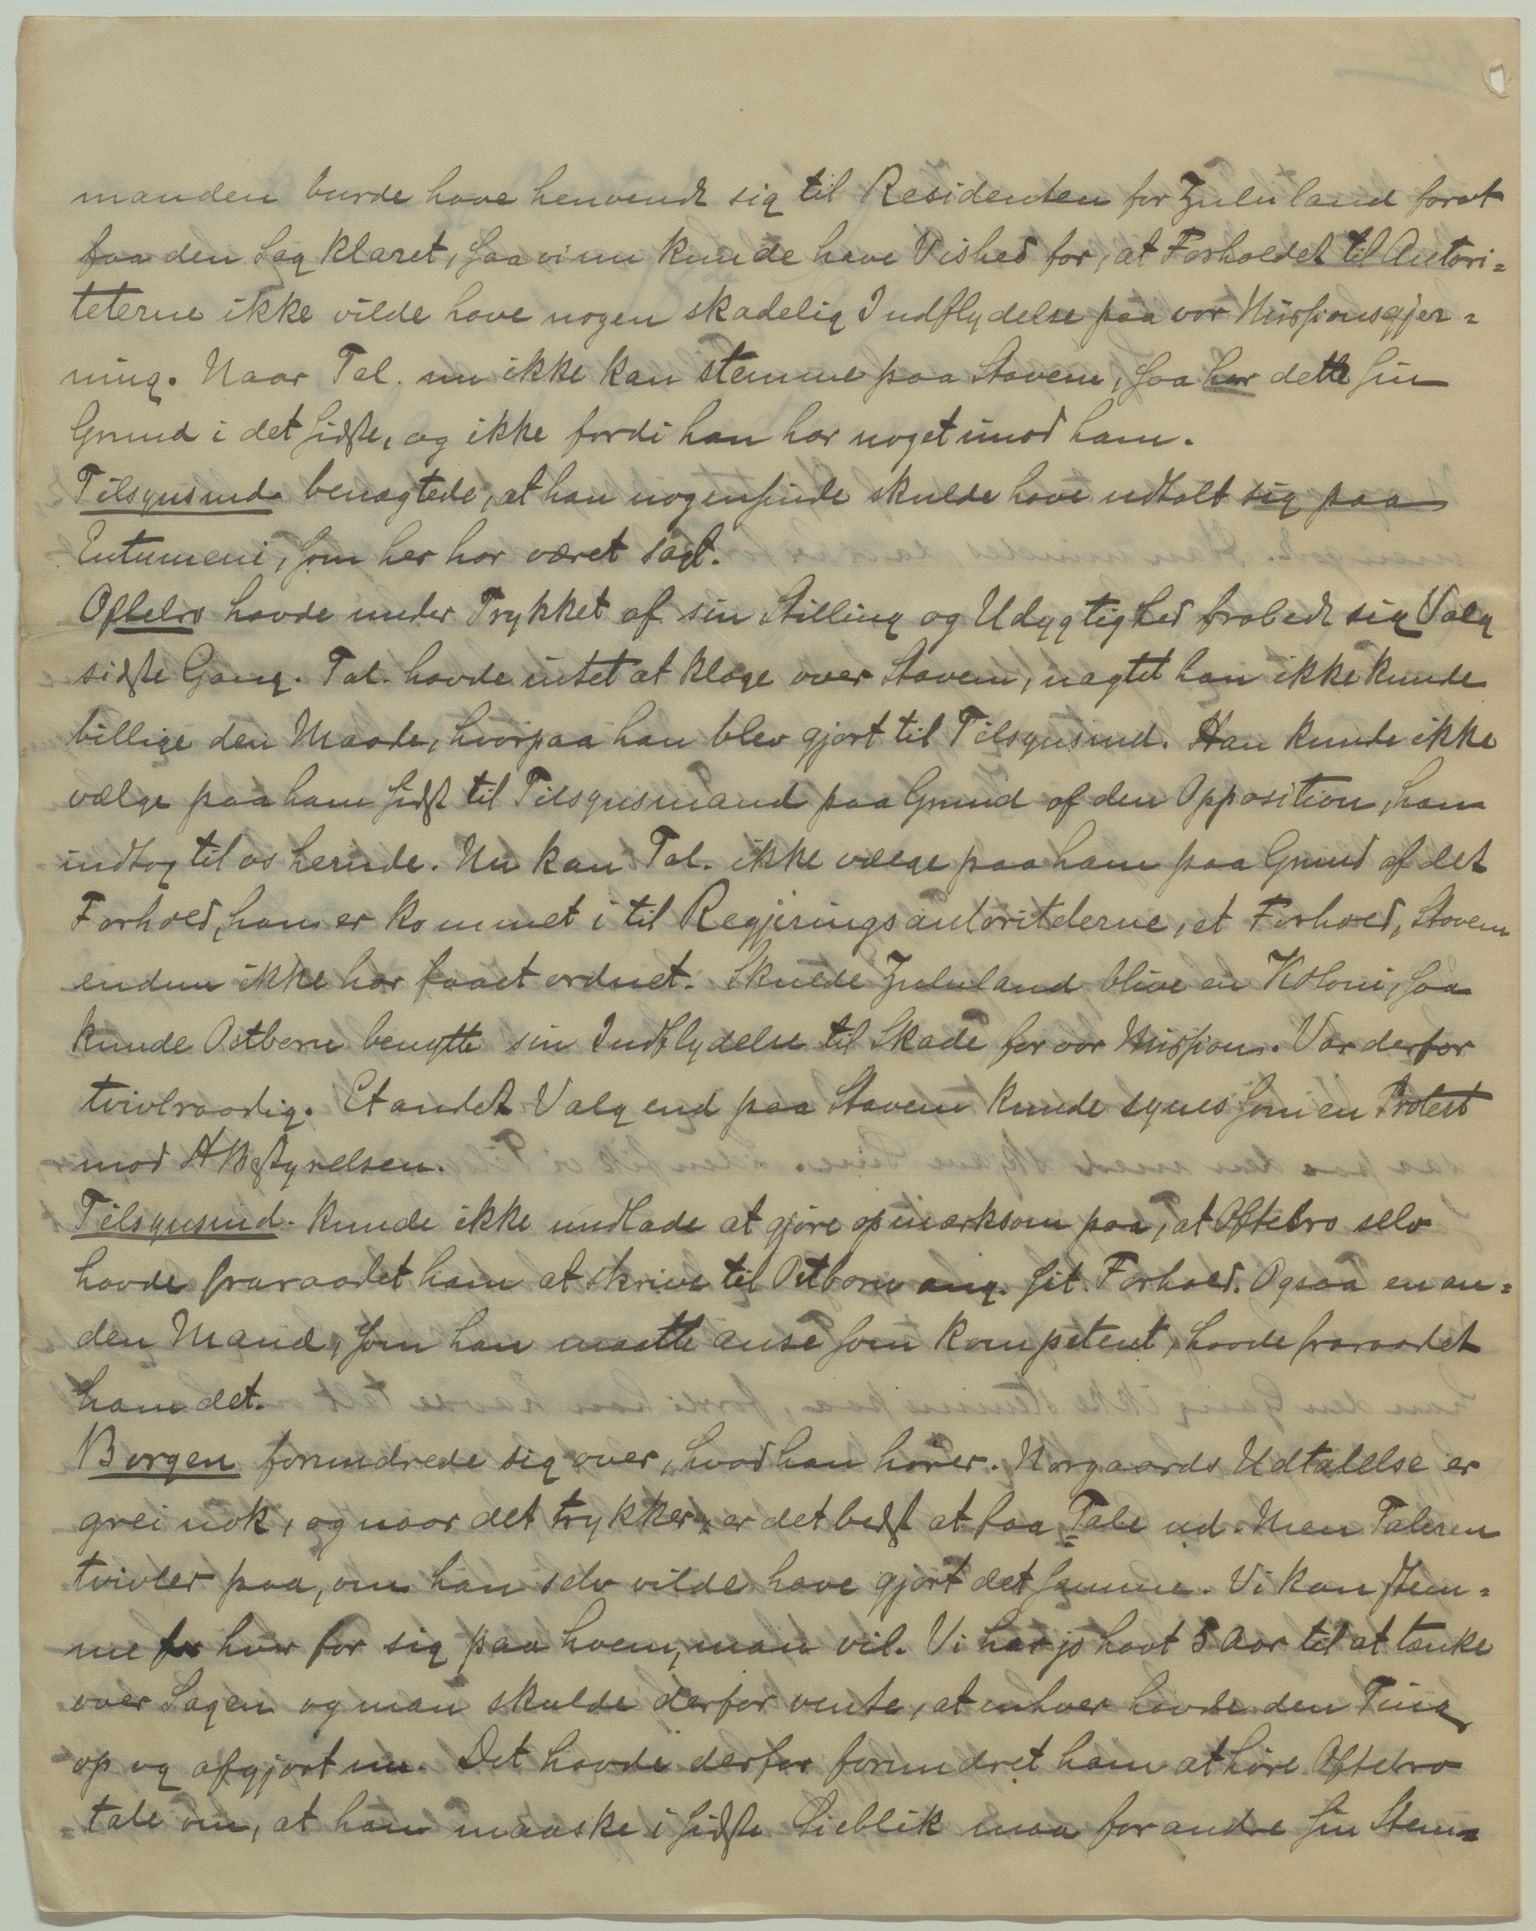 manden burde have henvendt sig til Residenten for Zululand forat
faa den Sag klaret, saa vi nu kunde have Vished for, at Forholdet til Autori=
teterne ikke vilde have nogen skadelig Indflydelse paa vor Missionsgjer=
ning. Naar Tal. nu ikke kan stemme paa Stavem, saa har dette sin
Grund i det sidste, og ikke fordi han har noget imod ham.
Tilsynsmd. benægtede, at han nogensinde skulde have udtalt sig paa
Entumeni, som her har været sagt.
Oftebro havde under Trykket af sin Stilling og Udygtighed frabedt sig Valg
sidste Gang. Tal. havde intet at klage over Stavem, uagtet han ikke kunde
billige den Maade, hvorpaa han blev gjort til Tilsynsmd. Han kunde ikke
vælge paa ham sidst til Tilsynsmand paa Grund af den Opposition, han
indtog til os hernede. Nu kan Tal. ikke vælge paa ham paa Grund af det
Forhold, han er kommet i til Regjeringsautoriteterne, et Forhold, Stavem
endnu ikke har faaet ordnet. Skulde Zululand blive en Koloni, saa
kunde Ostborn benytte sin Indflydelse til Skade for vor Mission. Var derfor
tvivlraadig. Et andet Valg end paa Stavem kunde synes som en Protest
mod HBestyrelsen.
Tilsynsmd. kunde ikke undlade at gjøre opmærksom paa, at Oftebro selv
havde fraraadet ham at skrive til Ostborn ang. sit Forhold. Ogsaa en an=
den Mand, som han maatte anse som kompetent, havde fraraadet
ham det.
Borgen forundrede sig over, hvad han hører. Norgaards Udtalelse er
grei nok, og naar det trykker, er det bedst at faa Tale ud. Men Taleren
tvivler paa, om han selv vilde have gjort det samme. Vi kan stem=
me for hver for sig paa hvem, man vil. Vi har jo havt 5 Aar til at tænke
over Sagen og man skulde derfor vente, at enhver havde den Ting
op og afgjort nu. Det havde derfor forundret ham at høre Oftebro
tale om, at han maaske i sidste Øieblik maa forandre sin Stem=